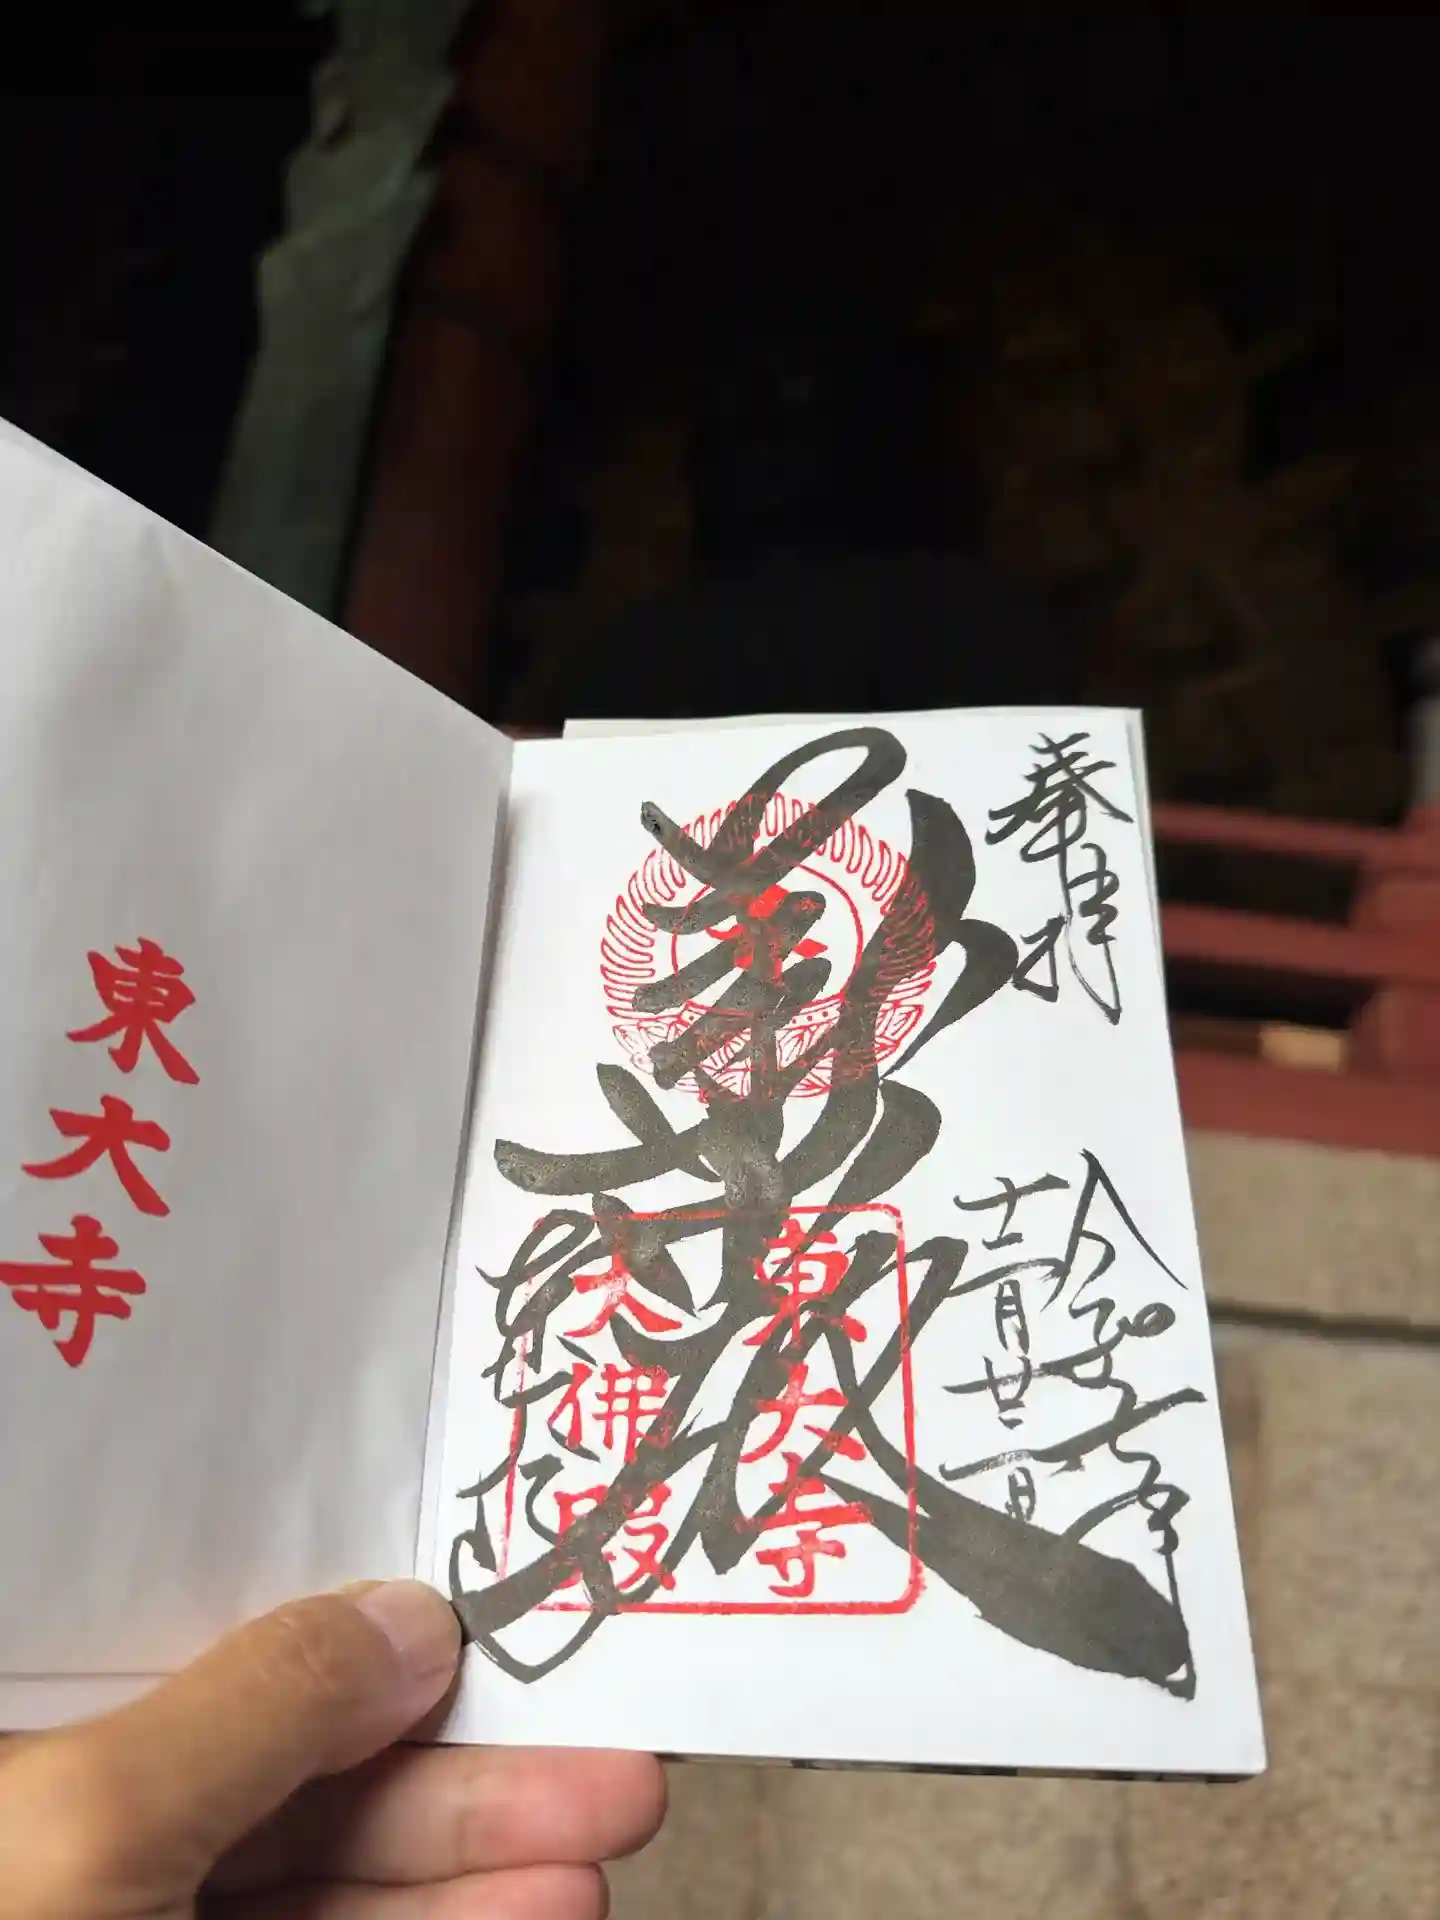 奉拝
令和七年
十二月廿二日
華嚴
東大寺
東大寺
大佛殿
東大寺